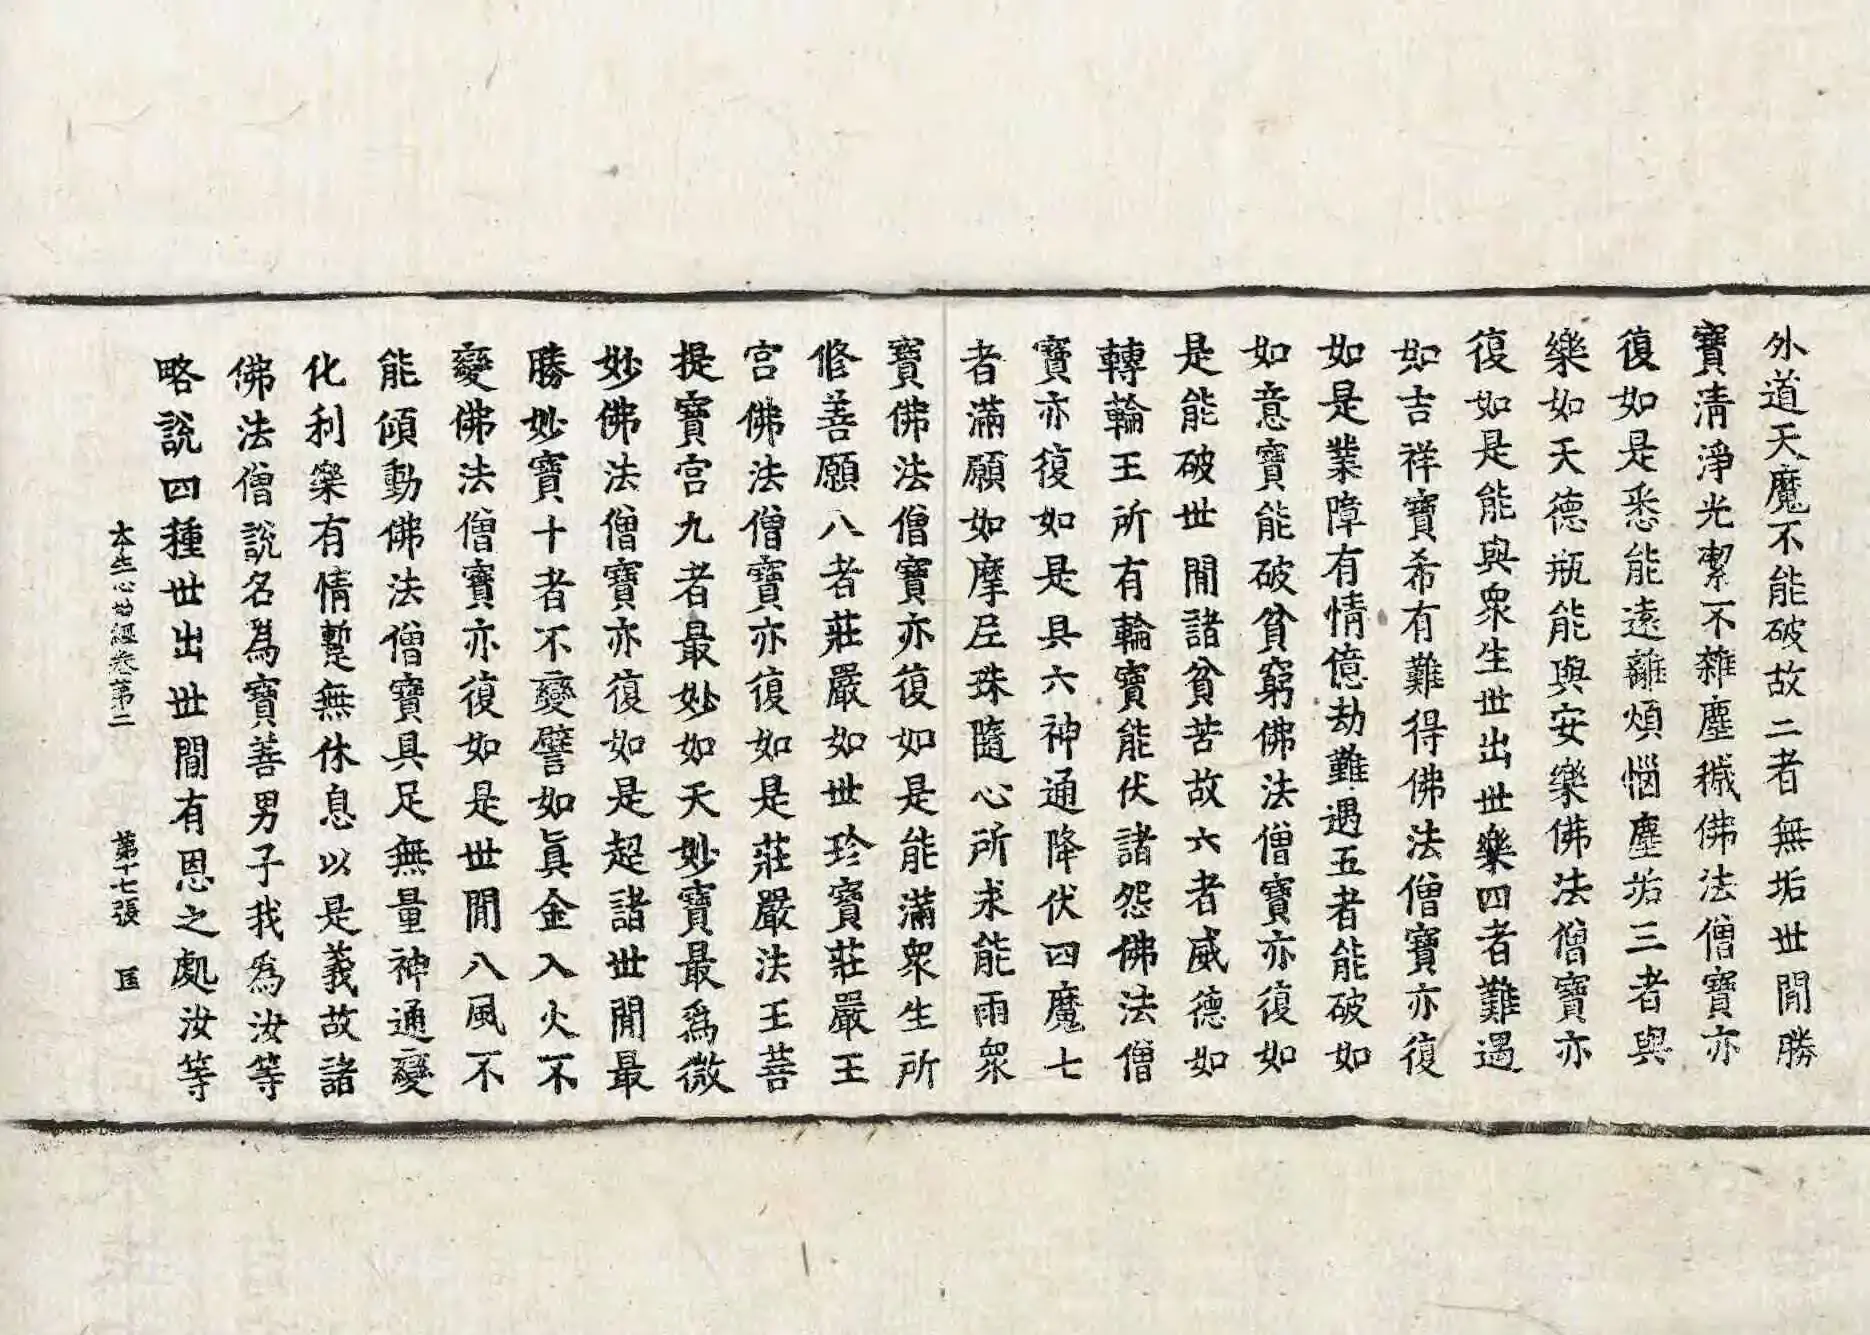 外道天魔不能破故二者無垢世閒勝
寶清淨光潔不雜塵穢佛法僧寶亦
復如是悉能遠離煩惱塵垢三者與
樂如天德瓶能與安樂佛法僧寶亦
復如是能與衆生世出世樂四者難遇
如吉祥寶希有難得佛法僧寶亦復
如是業障有情億劫難遇五者能破如
如意寶能破貧窮佛法僧寶亦復如
是能破世閒諸貧苦故六者威德如
轉輪王所有輪寶能伏諸怨佛法僧
寶亦復如是具六神通降伏四魔七
者滿願如摩尼珠隨心所求能雨衆
寶佛法僧寶亦復如是能滿衆生所
修善願八者莊嚴如世珍寶莊嚴王
宮佛法僧寶亦復如是莊嚴法王菩
提寶宮九者最妙如天妙寶最爲微
妙佛法僧寶亦復如是超諸世閒最
勝妙寶十者不變譬如眞金入火不
變佛法僧寶亦復如是世閒八風不
能傾動佛法僧寶具足無量神通變
化利樂有情暫無休息以是義故諸
佛法僧說名為寶善男子我爲汝等
略說四種世出世間有恩之處汝等
本生心地經卷第二　第十七張　匡